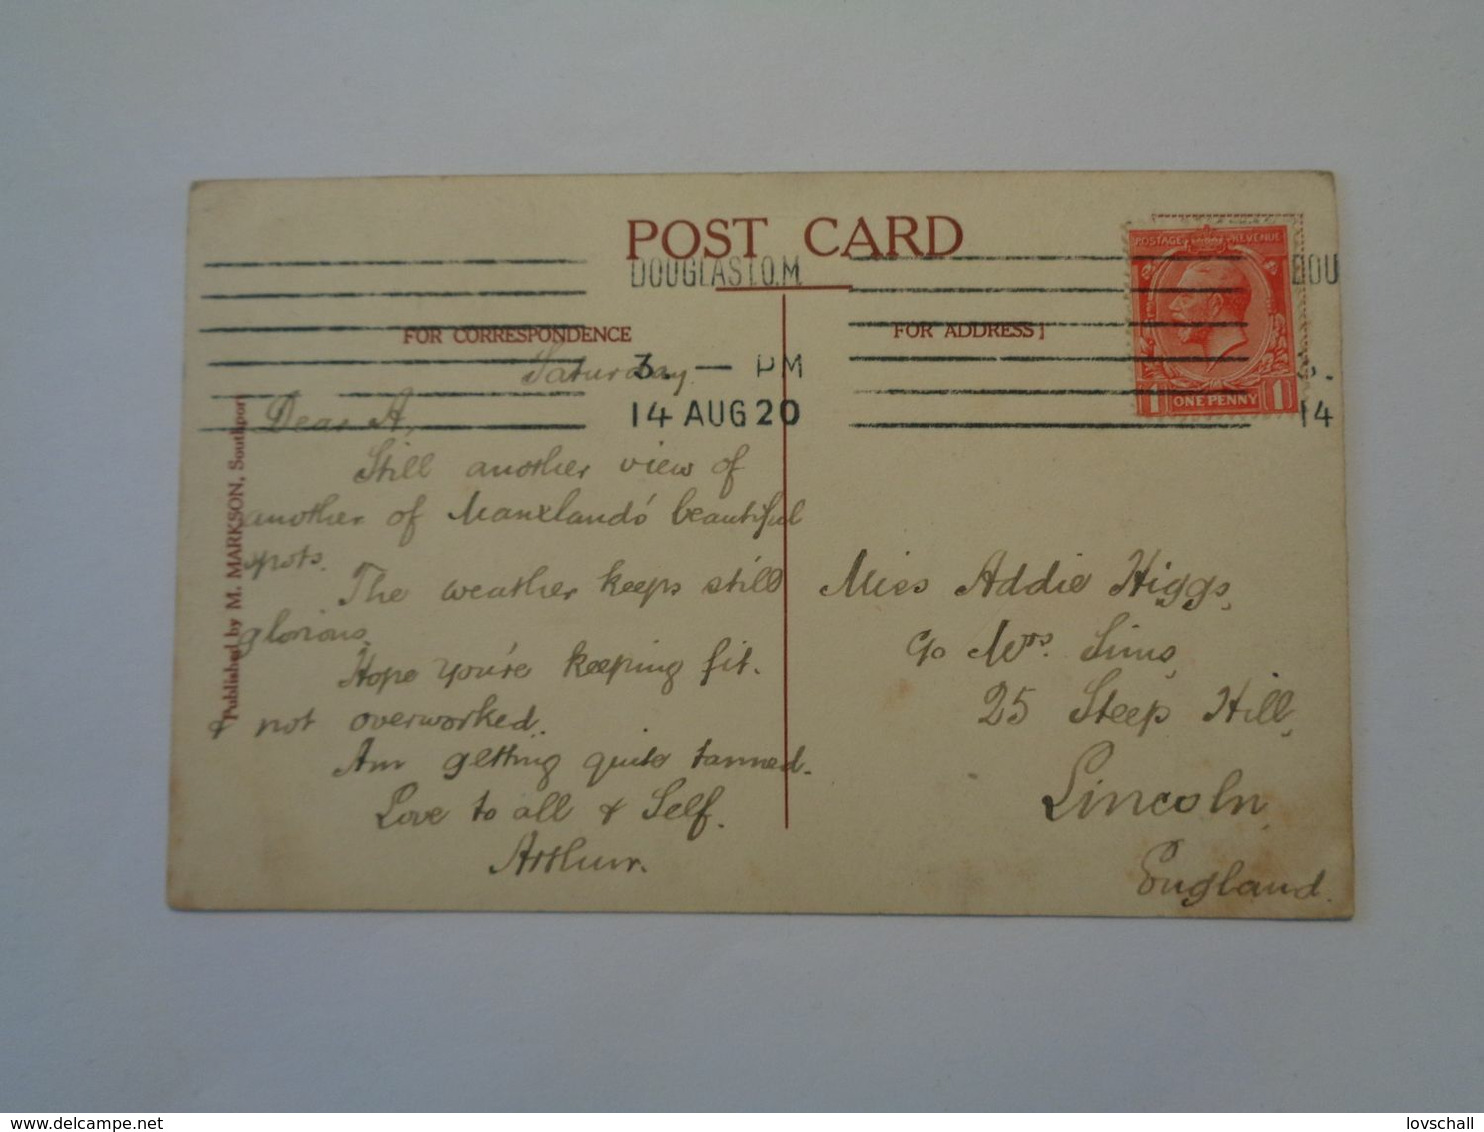 POST CARD
DOUGLAS I.O.M.
DOU
FOR CORRESPONDENCE
FOR ADDRESS
3. — PM
14 AUG 20
3.
14
POSTAGE REVENUE
1 ONE PENNY 1
Published by M. MARKSON, Southport
Saturday
Dear A,
Still another view of
another of Manxland's beautiful
spots.
The weather keeps still
glorious.
Hope you're keeping fit.
& not overworked.
Am getting quite tanned.
Love to all & Self.
Arthur.
Miss Addie Higgs,
c/o Mrs. Sims,
25 Steep Hill,
Lincoln,
England.
© www.delcampe.net
lovschall